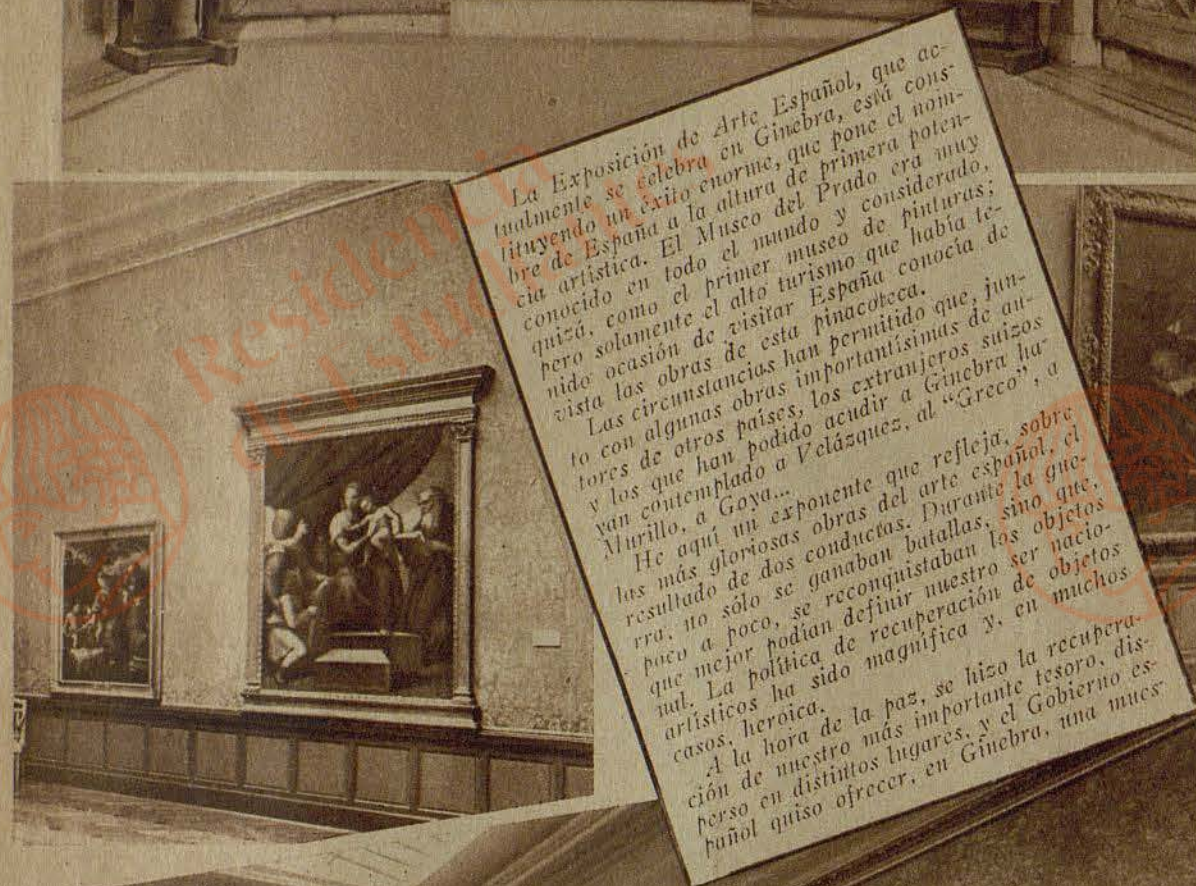 La Exposición de Arte Español, que ac-
tualmente se celebra en Ginebra, está cons-
tituyendo un éxito enorme, que pone el nom-
bre de España a la altura de primera poten-
cia artística. El Museo del Prado era muy
conocido en todo el mundo y considerado,
quizá, como el primer museo de pinturas;
pero solamente el alto turismo que había te-
nido ocasión de visitar España conocía de
vista las obras de esta pinacoteca.
Las circunstancias han permitido que, jun-
to con algunas obras importantísimas de au-
tores de otros países, los extranjeros suizos
y los que han podido acudir a Ginebra ha-
yan contemplado a Velázquez, al "Greco", a
Murillo, a Goya...
He aquí un exponente que refleja, sobre
las más gloriosas obras del arte español, el
resultado de dos conductas. Durante la gue-
rra, no sólo se ganaban batallas, sino que,
poco a poco, se reconquistaban los objetos
que mejor podían definir nuestro ser nacio-
nal. La política de recuperación de objetos
artísticos ha sido magnífica y, en muchos
casos, heroica.
A la hora de la paz, se hizo la recupera-
ción de nuestro más importante tesoro, dis-
perso en distintos lugares, y el Gobierno es-
pañol quiso ofrecer, en Ginebra, una mues-
Residencia
de Estudiantes